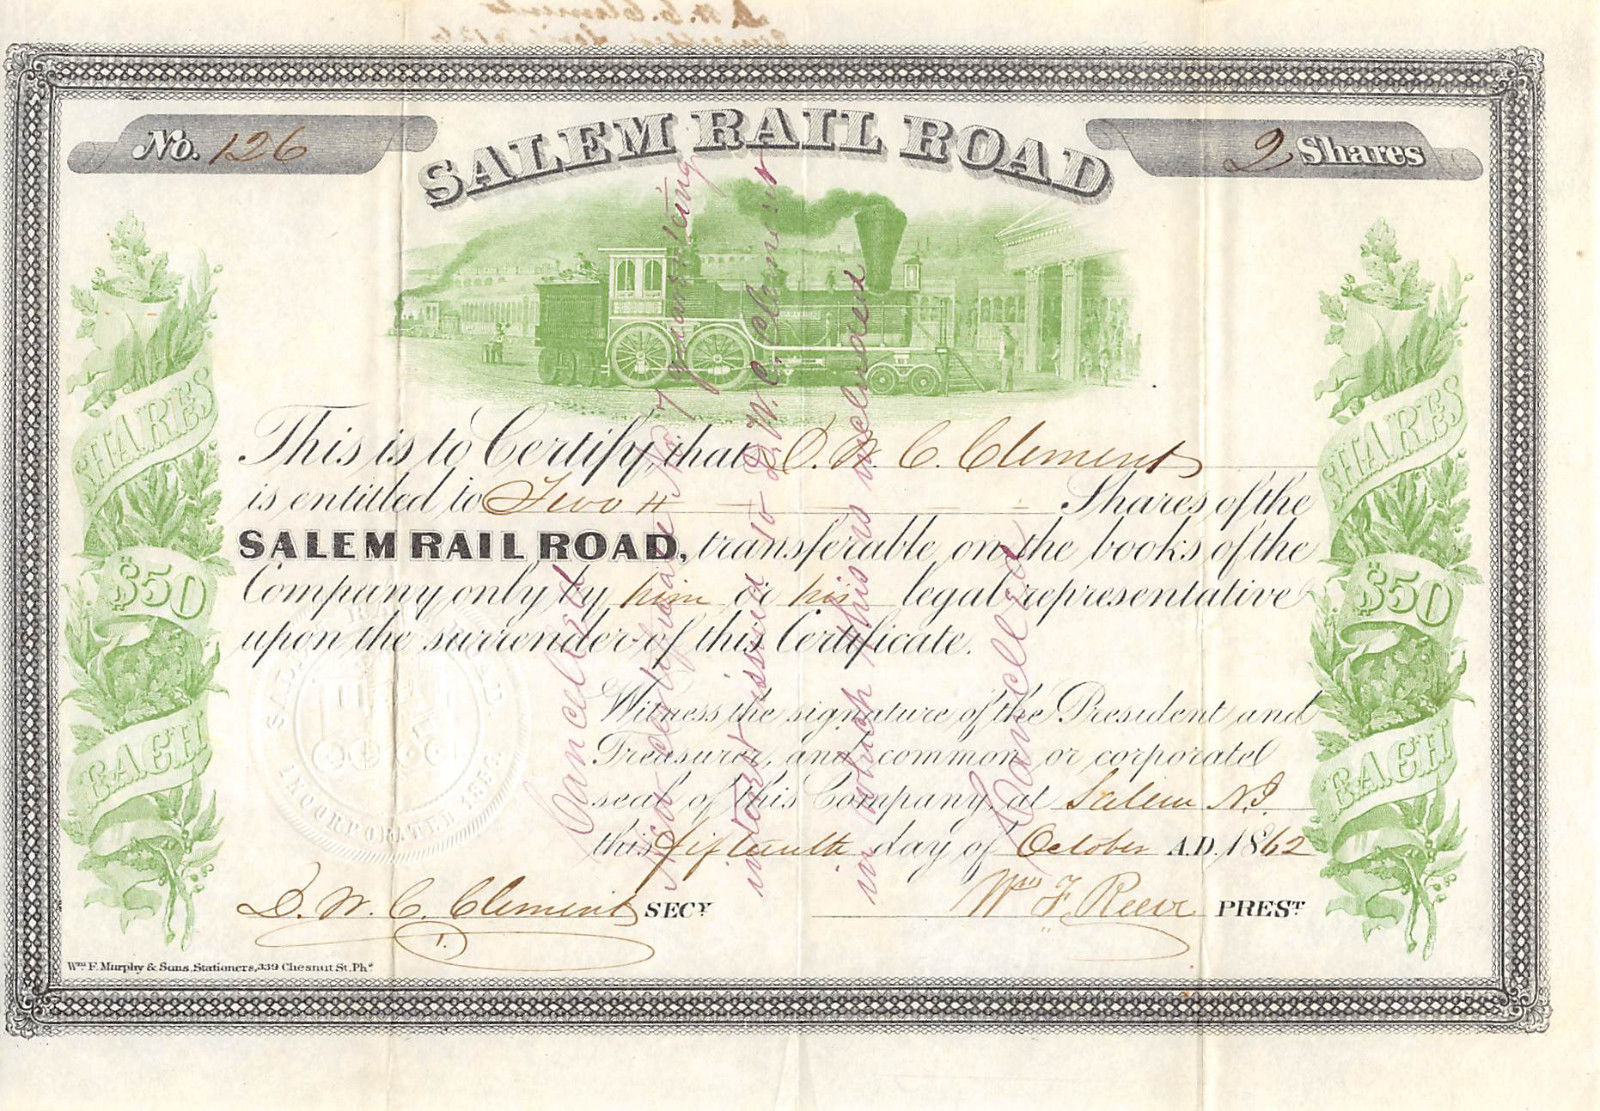 No. 126
SALEM RAIL ROAD
2 Shares
SHARES
$50
EACH
SHARES
$50
EACH
This is to Certify, that D. W. C. Clement
is entitled to Two Shares of the
SALEM RAIL ROAD, transferable on the books of the
Company only by him or his legal representative
upon the surrender of this Certificate.
Witness the signature of the President and
Treasurer, and common or corporate
seal of this Company, at Salem N.J.
this fifteenth day of October A.D. 1862
D. W. C. Clement SECY
Wm F. Reeve PREST
Wm F. Murphy & Sons, Stationers, 339 Chesnut St. Pha
INCORPORATED
Cancelled
New certificate No 7
issued to D. W. C. Clement
in which this is included
Cancelled